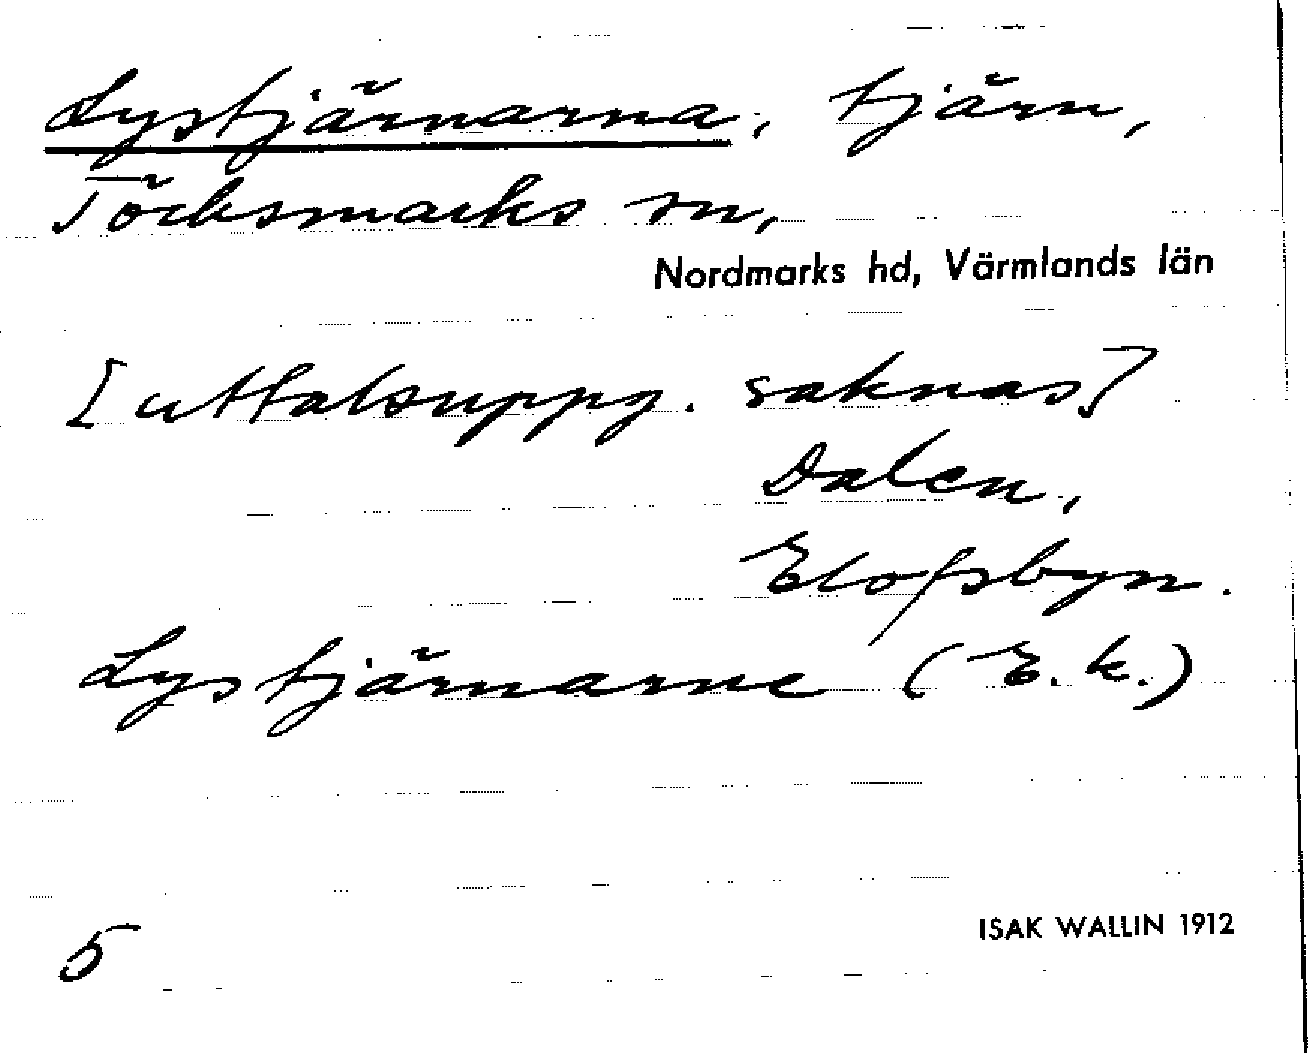 Lystjärnarna, tjärn,
Töcksmarks sn,
Nordmarks hd, Värmlands län
[uttalsuppg. saknas]
Dalen,
Elofsbyn.
Lystjärnarne (E. k.)
5
ISAK WALLIN 1912